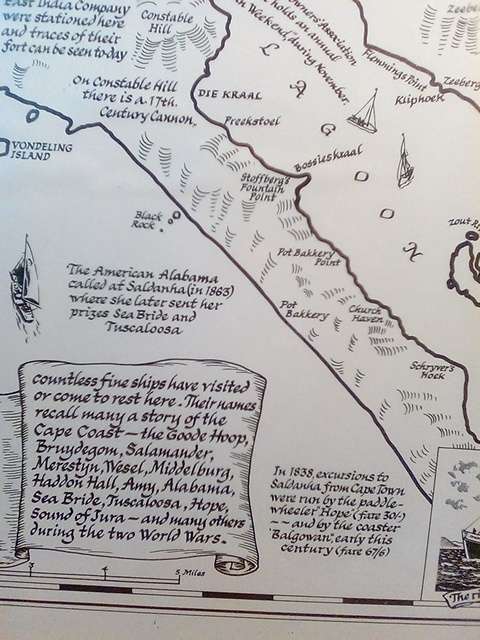 East India Company
were stationed here
and traces of their
fort can be seen to-day
Constable
Hill
On Constable Hill
there is a 17th.
Century Cannon.
owners' Association
holds an annual
Weekend, during November.
L
A
G
N
DIE KRAAL
Preekstoel
Bossieskraal
Flemmings Point
Kliphoek
Zeeberg
Zeeberg
VONDELING
ISLAND
Stofberg's
Fountain
Point
Black
Rock
Zout R
Pot Bakkery
Point
Pot
Bakkery
Church
Haven
Schryver's
Hoek
The American Alabama
called at Saldanha (in 1863)
where she later sent her
prizes Sea Bride and
Tuscaloosa
countless fine ships have visited
or come to rest here. Their names
recall many a story of the
Cape Coast — the Goode Hoop,
Bruydegom, Salamander,
Merestyn, Wesel, Middelburg,
Haddon Hall, Amy, Alabama,
Sea Bride, Tuscaloosa, Hope,
Sound of Jura — and many others
during the two World Wars.
In 1838, excursions to
Saldanha from Cape Town
were run by the paddle-
wheeler 'Hope' (fare 30/-)
~ ~ and by the coaster
'Balgowan', early this
century (fare 67/6)
3 4 5 Miles
The